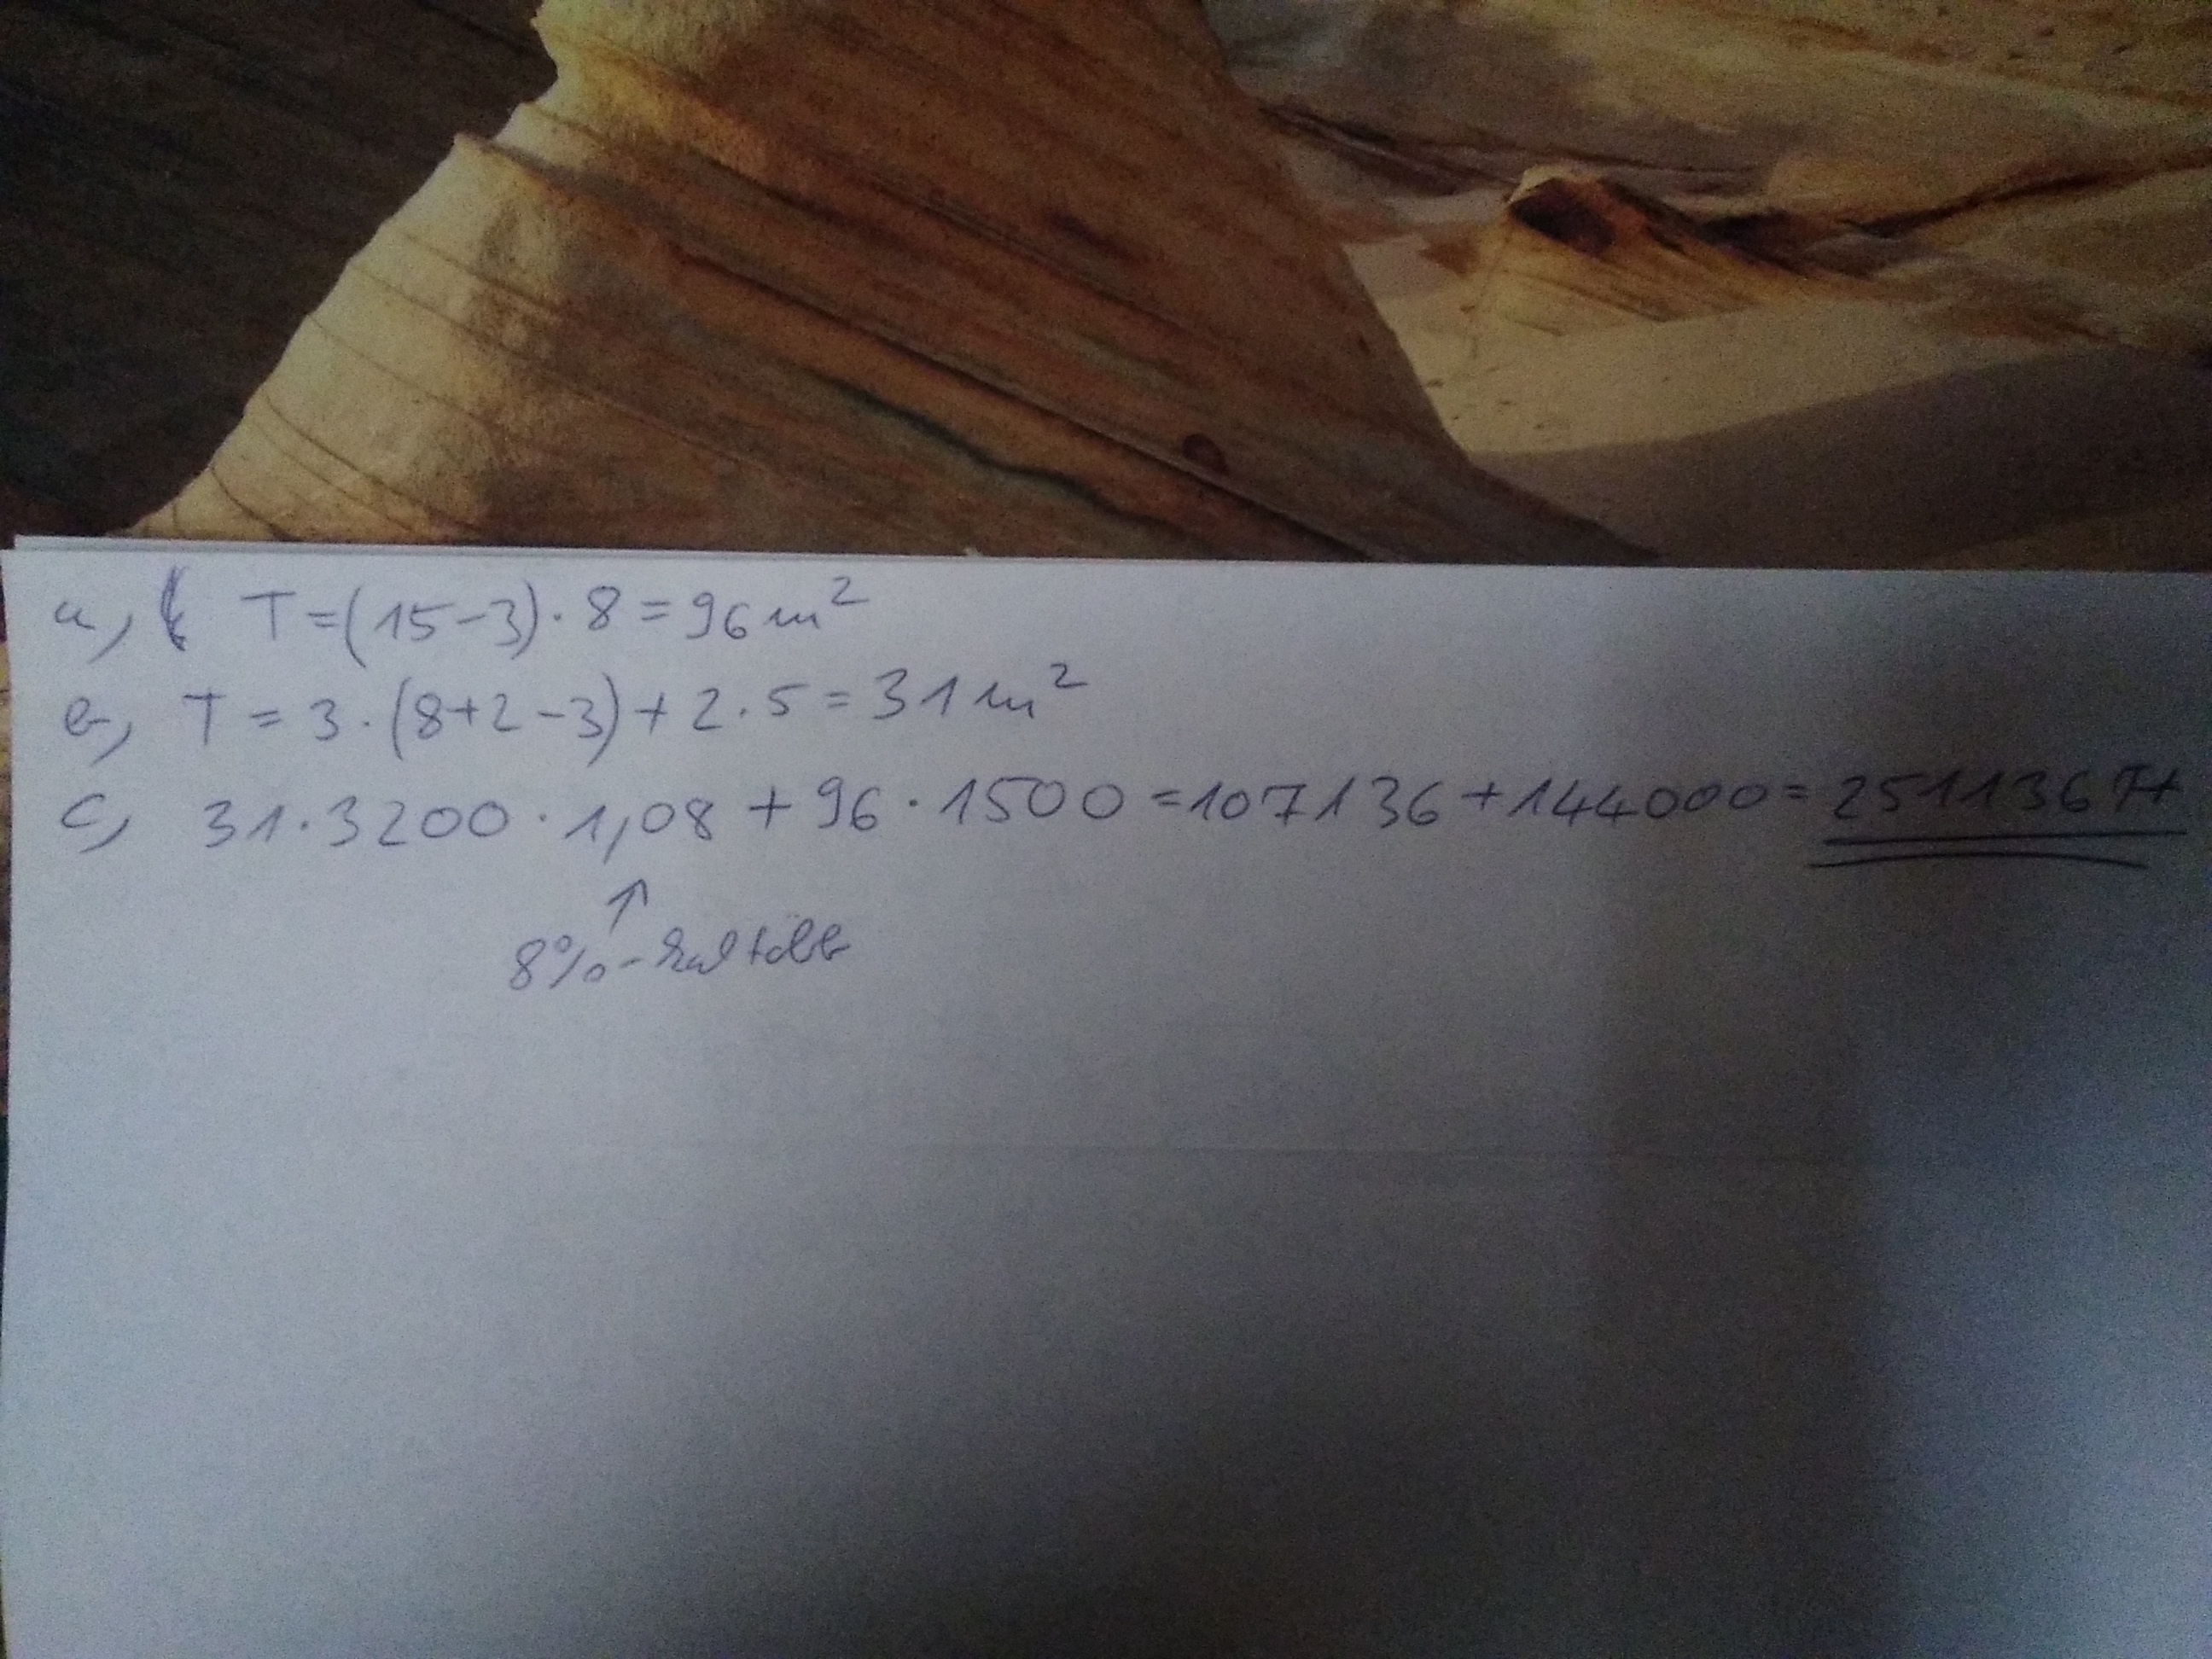 a, T=(15-3)·8=96m²
b, T=3·(8+2-3)+2·5=31m²
c, 31·3200·1,08+96·1500=107136+144000=251136Ft
↑
8%-kal több